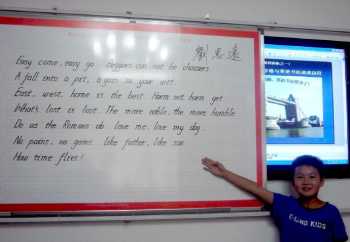 Easy come, easy go. Beggars can not be choosers.
A fall into a pit, a gain in your wit.
East, west, home is the best. Harm set, harm get.
What's lost is lost. The more noble, the more humble.
Do as the Romans do. love me, love my dog.
No pains, no gains. like father, like son.
How time flies!
KIDS